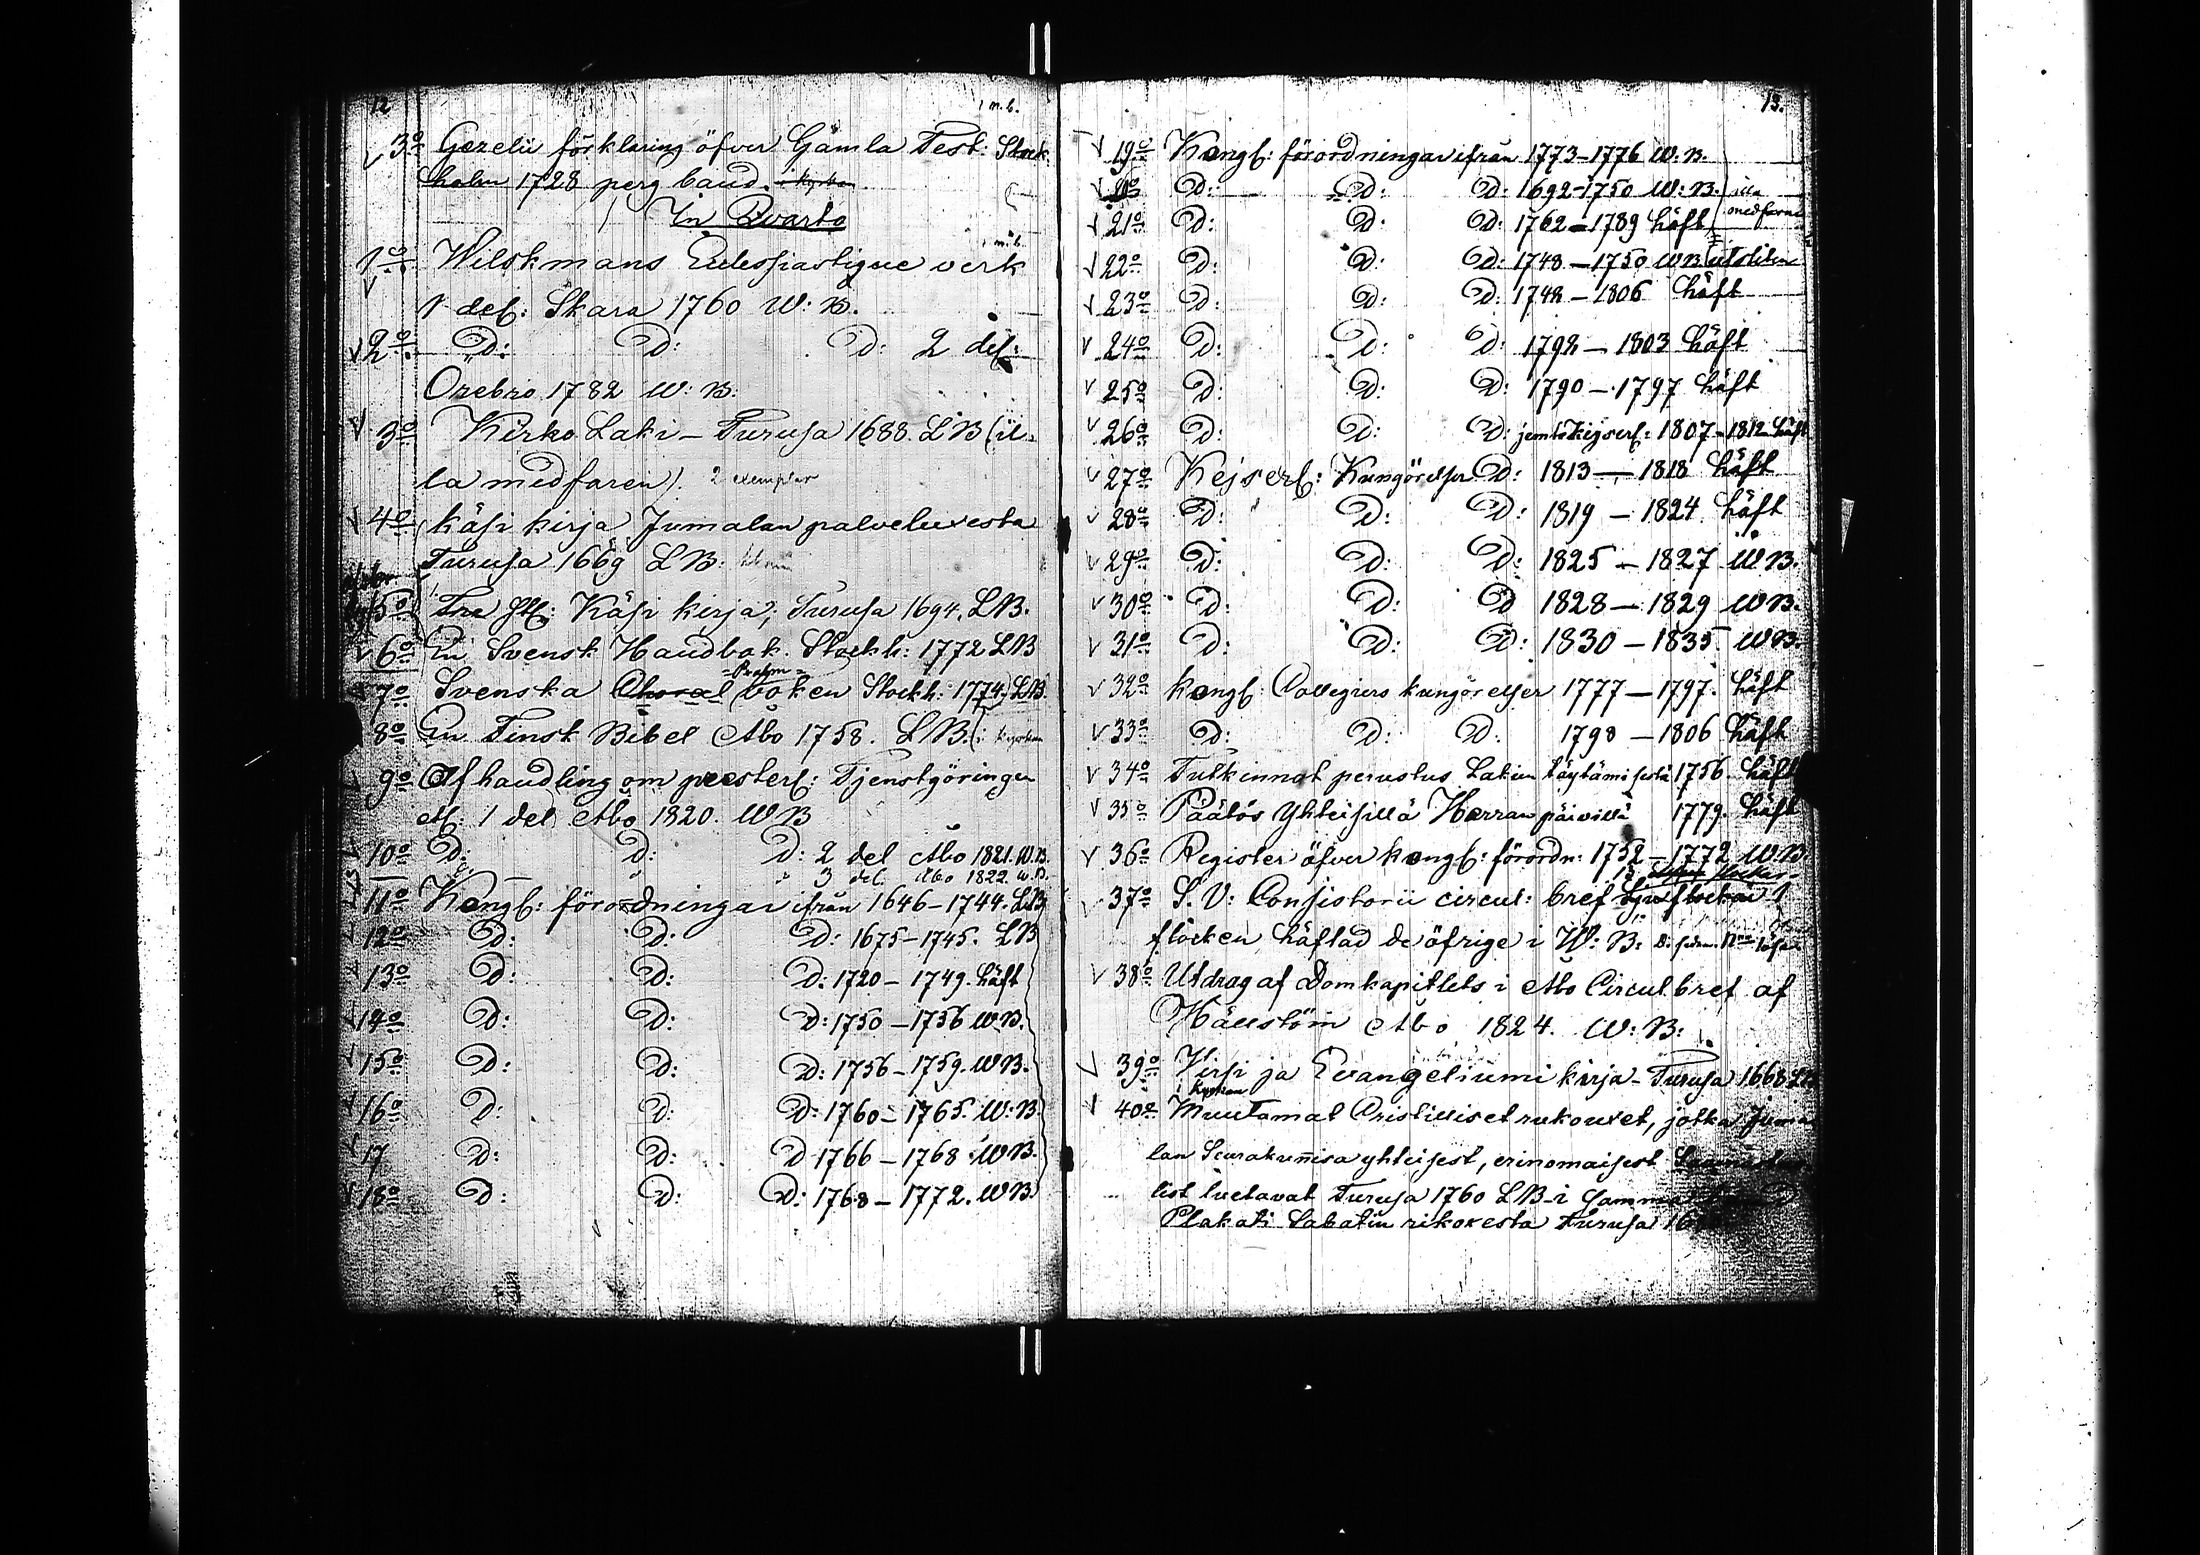 12
1 m.b.
√ 3:o Gezelii förklaring öfver Gamla Test: Stock
holm 1728 perg band. i kyrkan
In Qvarto
1 m.b.
1:o Wilskmans Eclesiastique verk
√ 1 del: Skara 1760 W: B.
√ 2:o D: D: D: 2 del:
Örebro 1782 W: B:
√ 3:o Kirko Laki – Turusa 1688. LB (il-
la medfaren). 2 exemplar
√ 4:o Käsi kirja Jumalan palveluxesta
Turusa 1669 LB:
5:o Tre st: Käsi kirja, Turusa 1694. LB.
√ 6:o En Svensk Handbok. Stockh: 1772 LB
= Psalm =
√ 7:o Svenska Choral boken Stockh: 1774. LB.
8:o En Finsk Bibel Åbo 1758. LB. (i kyrkan
9:o Afhandling om presterl: Tjenstgöringen
etc: 1 del Åbo 1820. WB
10:o D: D: D: 2 del Åbo 1821. W.B.
D: " " 3 del. Åbo 1822. W.B.
11:o Kongl: förordningar ifrån 1646–1744. LB
12:o D: D: D: 1675–1745. LB
13:o D: D: D: 1720–1749. häft
√ 14:o D: D: D: 1750–1756 WB.
√ 15:o D: D: D: 1756–1759. WB.
√ 16:o D: D: D: 1760–1765. W:B.
√ 17 D: D: D 1766–1768 WB.
√ 18:o D: D: D: 1768–1772. WB
13.
√ 19:o Kongl: förordningar ifrån 1773–1776 W:B.
√ 20 D: D: D: 1692–1750 W:B. (illa
√ 21:o D: D: D: 1762–1789 häft (medfarne
√ 22:o D: D: D: 1748–1750 WB (utsliten
√ 23:o D: D: D: 1748–1806 häft
√ 24:o D: D: D: 1798–1803 häft
√ 25:o D: D: D: 1790–1797 häft
√ 26:o D: D: D: jemte Kejserl: 1807–1812 häft
√ 27:o Kejserl: Kungörelser D: 1813–1818 häft
√ 28:o D: D: D: 1819–1824 häft
√ 29:o D: D: D: 1825–1827 WB.
√ 30:o D: D: D 1828–1829 WB.
√ 31:o D: D: D: 1830–1835 WB.
√ 32:o Kongl: Collegiers kungörelser 1777–1797. häft
√ 33:o D: D: D: 1798–1806 häft
√ 34:o Tutkinnat perustus Lakien täytämisestä 1756. häft
√ 35:o Päätös Yhteisillä Herran päivillä 1779. häft
√ 36:o Register öfver kongl: förordn: 1752–1772 W:B.
√ 37:o S. V: Consistorii circul: bref
flocken häftad de öfrige i W: B:
√ 38:o Utdrag af Domkapitlets i Åbo Circul bref af
Hällstöm Åbo 1824. W: B:
√ 39:o Virsi ja Evangeliumi kirja – Turusa 1668 LB
i kyrkan
√ 40:o Muutamat Cristilliset rukouxet, jotka Juma
lan Seurakunnisa yhteisest, erinomaisest
tist luetavat Turusa 1760 LB – i
Plakati Sabatin rikoxesta Turusa